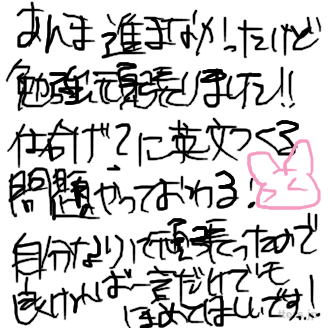 あんま進まなかったけど
勉強して頑張りました!!
仕合げ?に英文つくる
問題やっておわる!
自分なりに頑張ったので
良ければ一言だけでも
ほめてほしいです!